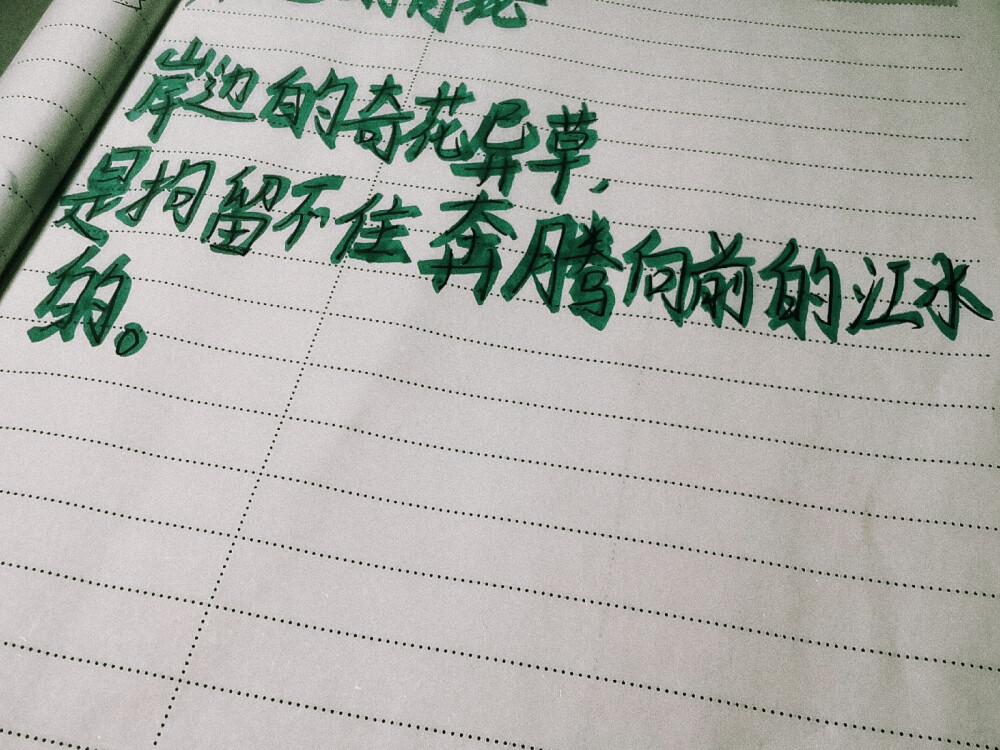 岸边的奇花异草,
是拘留不住奔腾向前的江水
的。